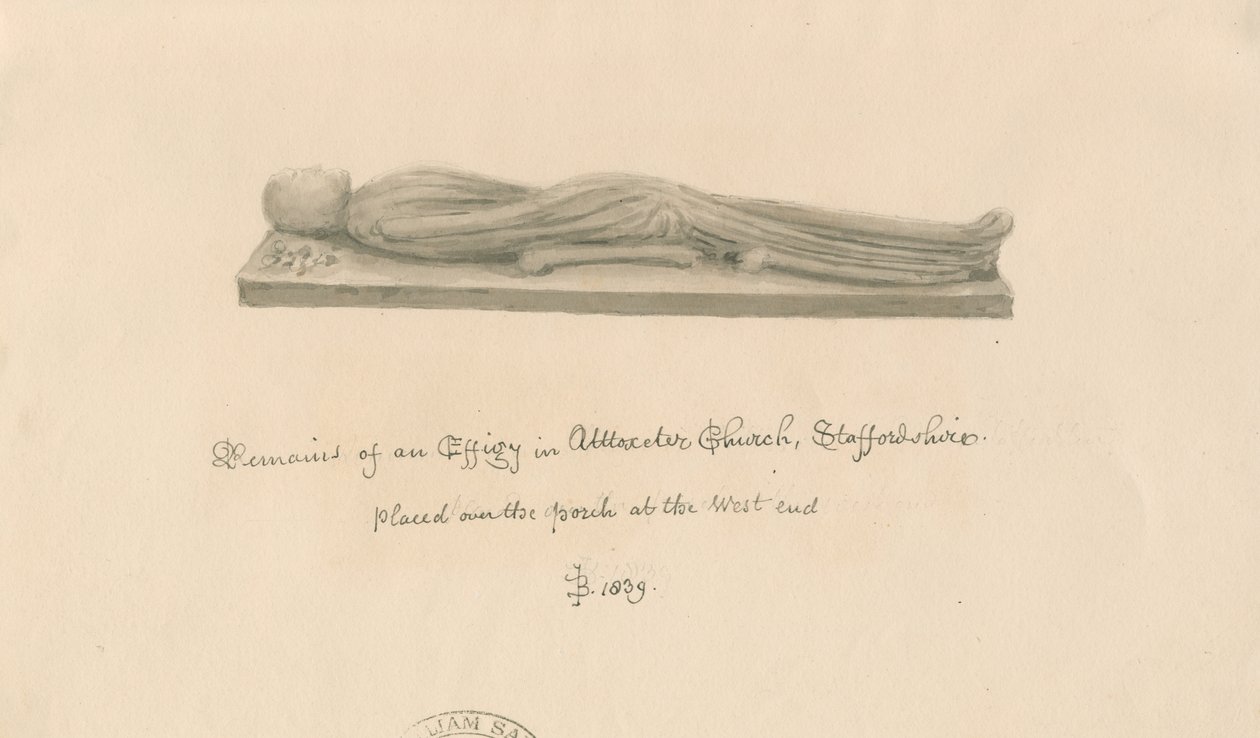 Remains of an Effigy in Uttoxeter Church, Staffordshire.
placed over the porch at the West end
JB. 1839.
LIAM SA